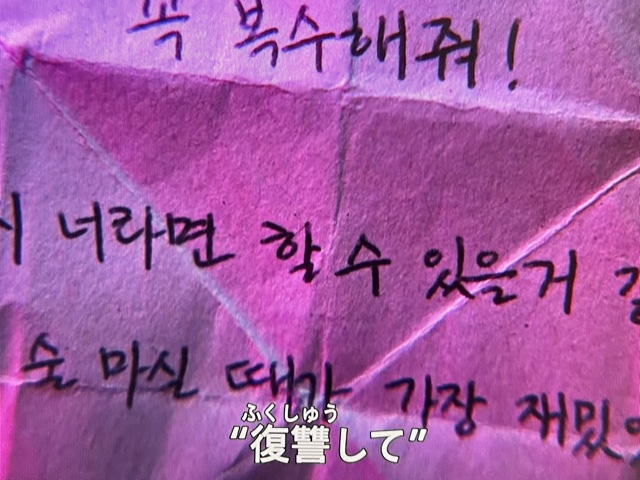 꼭 복수해줘!
너라면 할 수 있을거
술 마실 때가 가장 재밌
ふくしゅう
“復讐して”